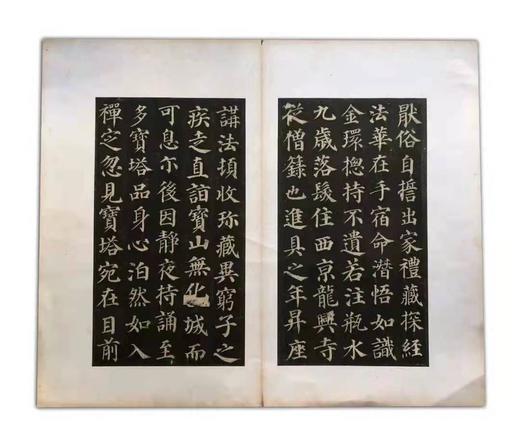 厭俗自誓出家禮藏探經
法華在手宿命潛悟如識
金環揔持不遺若注瓶水
九歳落髮住西京龍興寺
從僧籙也進具之年昇座
講法頓收珎藏異窮子之
疾走直詣寶山無化城而
可息尓後因靜夜持誦至
多寶塔品身心泊然如入
禪定忽見寶塔宛在目前